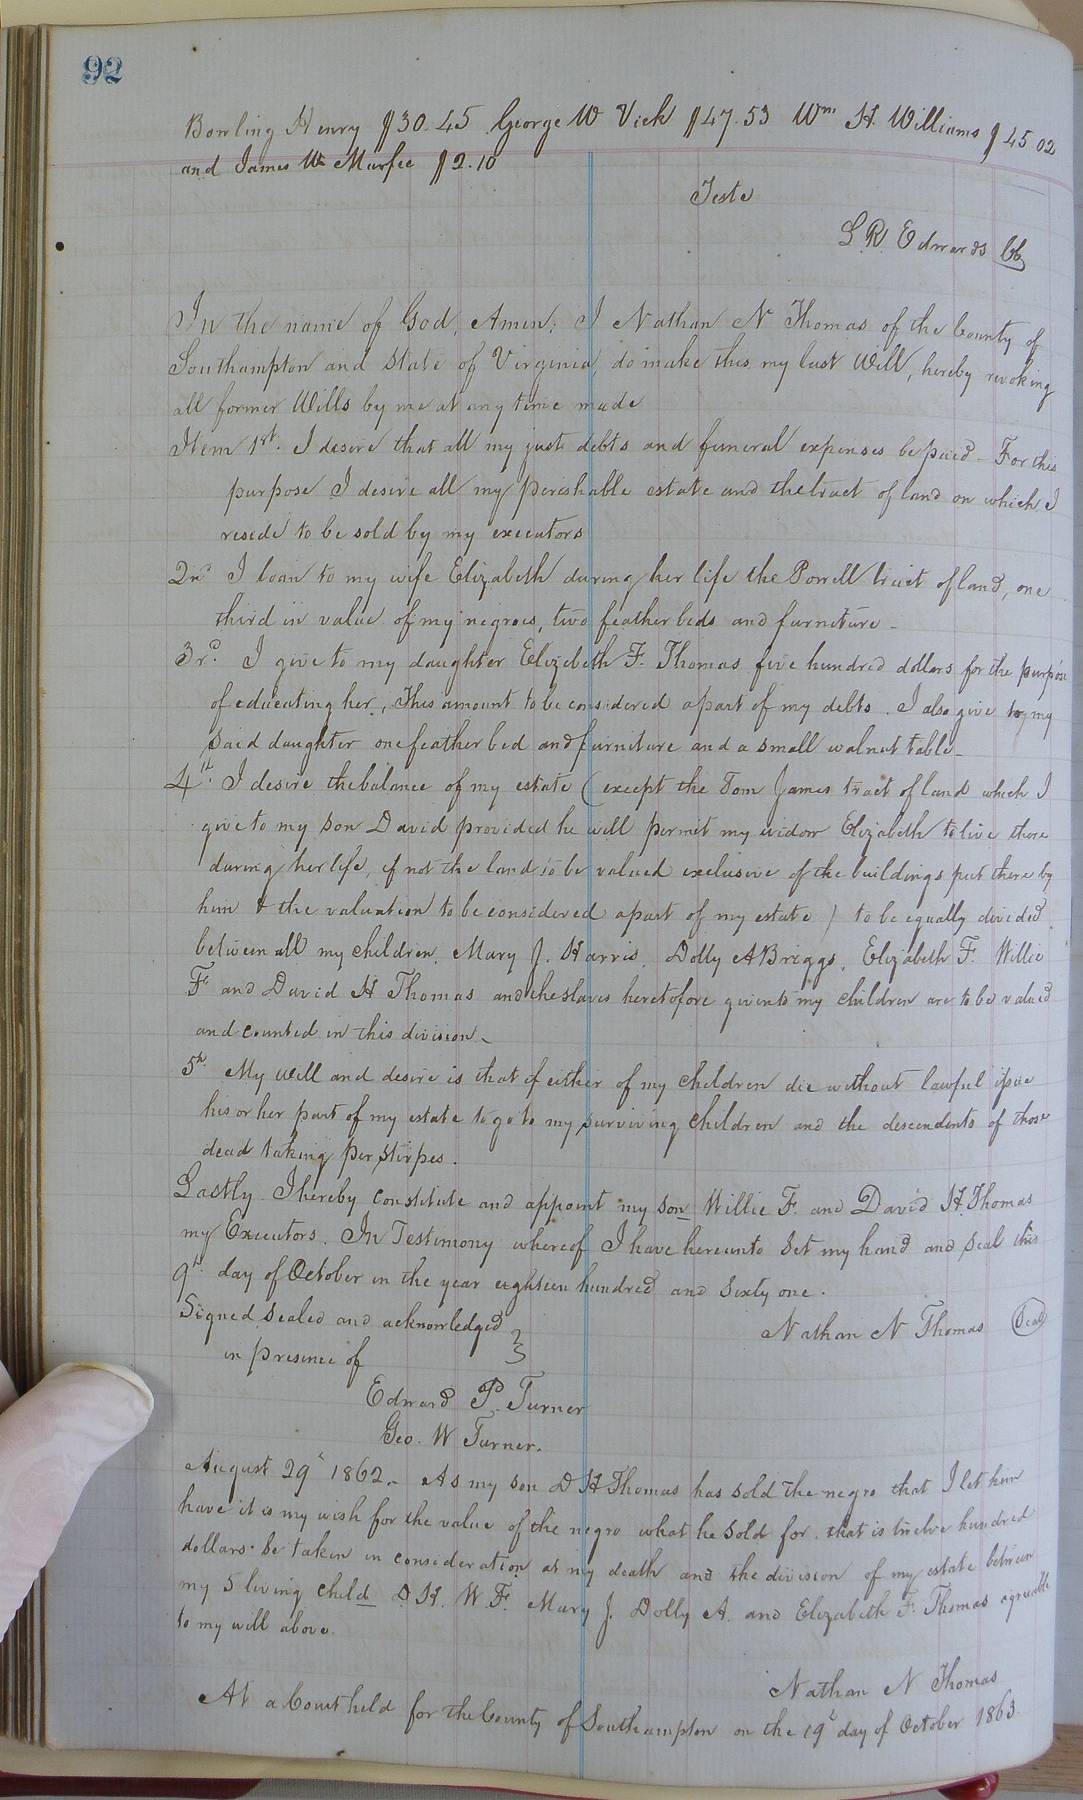 92
Bowling Henry $30.45 George W Vick $47.53 Wm H. Williams $45.02
and James W Murfee $2.10
Teste
L R Edwards CC
In the name of God, Amen; I Nathan N Thomas of the County of
Southampton and State of Virginia, do make this my last Will, hereby revoking
all former Wills by me at any time made
Item 1st. I desire that all my just debts and funeral expenses be paid - For this
purpose I desire all my perishable estate and the tract of land on which I
reside to be sold by my executors
2nd I loan to my wife Elizabeth during her life the Powell tract of land, one
third in value of my negroes, two feather beds and furniture -
3rd. I give to my daughter Elizabeth F. Thomas five hundred dollars for the purpose
of educating her, this amount to be considered apart of my debts. I also give to my
said daughter one feather bed and furniture and a small walnut table -
4th. I desire the balance of my estate (except the Tom James tract of land which I
give to my son David provided he will permit my widow Elizabeth to live there
during her life, if not the land to be valued exclusive of the buildings put there by
him & the valuation to be considered apart of my estate) to be equally divided
between all my children, Mary J. Harris, Dolly A Briggs, Elizabeth F. Willie
F and David H Thomas and the slaves heretofore given to my children are to be valued
and counted in this division -
5th. My will and desire is that if either of my children die without lawful issue
his or her part of my estate to go to my surviving children and the descendents of those
dead taking per stirpes.
Lastly I hereby constitute and appoint my son Willie F. and David H. Thomas
my Executors. In Testimony whereof I have hereunto set my hand and seal this
9th. day of October in the year eighteen hundred and sixty one.
Signed sealed and acknowledged }
Nathan N Thomas (Seal)
in presence of
Edward P. Turner
Geo. W Turner.
August 29th 1862 - As my son D H Thomas has sold the negro that I let him
have it is my wish for the value of the negro what he sold for, that is twelve hundred
dollars be taken in consideration at my death and the division of my estate between
my 5 living child D. H. W. F. Mary J. Dolly A. and Elizabeth F. Thomas agreeable
to my will above.
Nathan N Thomas
At a Court held for the County of Southampton on the 19th day of October 1863.